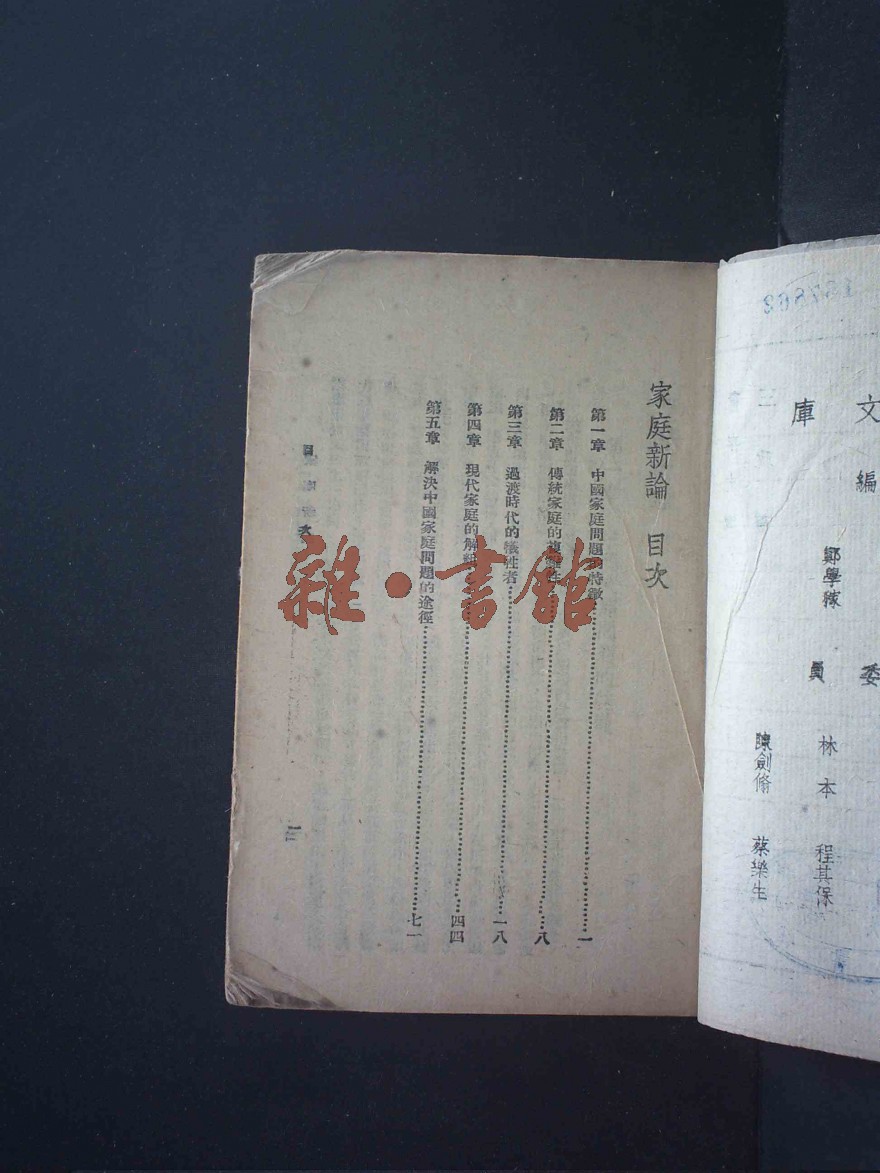 文
庫
編
委
員
鄭學稼
林本
程其保
陳劍脩
蔡樂生
家庭新論 目次
第一章 中國家庭問題的特徵……一
第二章 傳統家庭的複雜性……八
第三章 過渡時代的犧牲者……一八
第四章 現代家庭的解組……四四
第五章 解決中國家庭問題的途徑……七一
目次
雜·書館